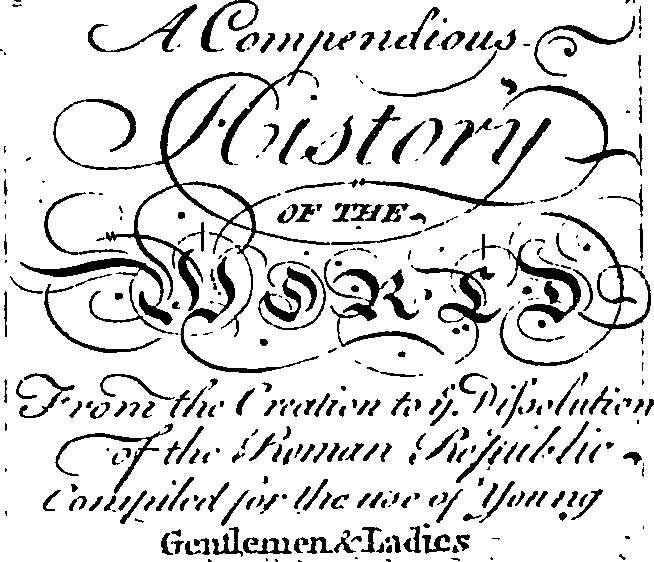 A Compendious
History
OF THE
WORLD
From the Creation to ẏ. Diſsolution
of the Roman Republic
Compiled for the use of Young
Gentlemen & Ladies